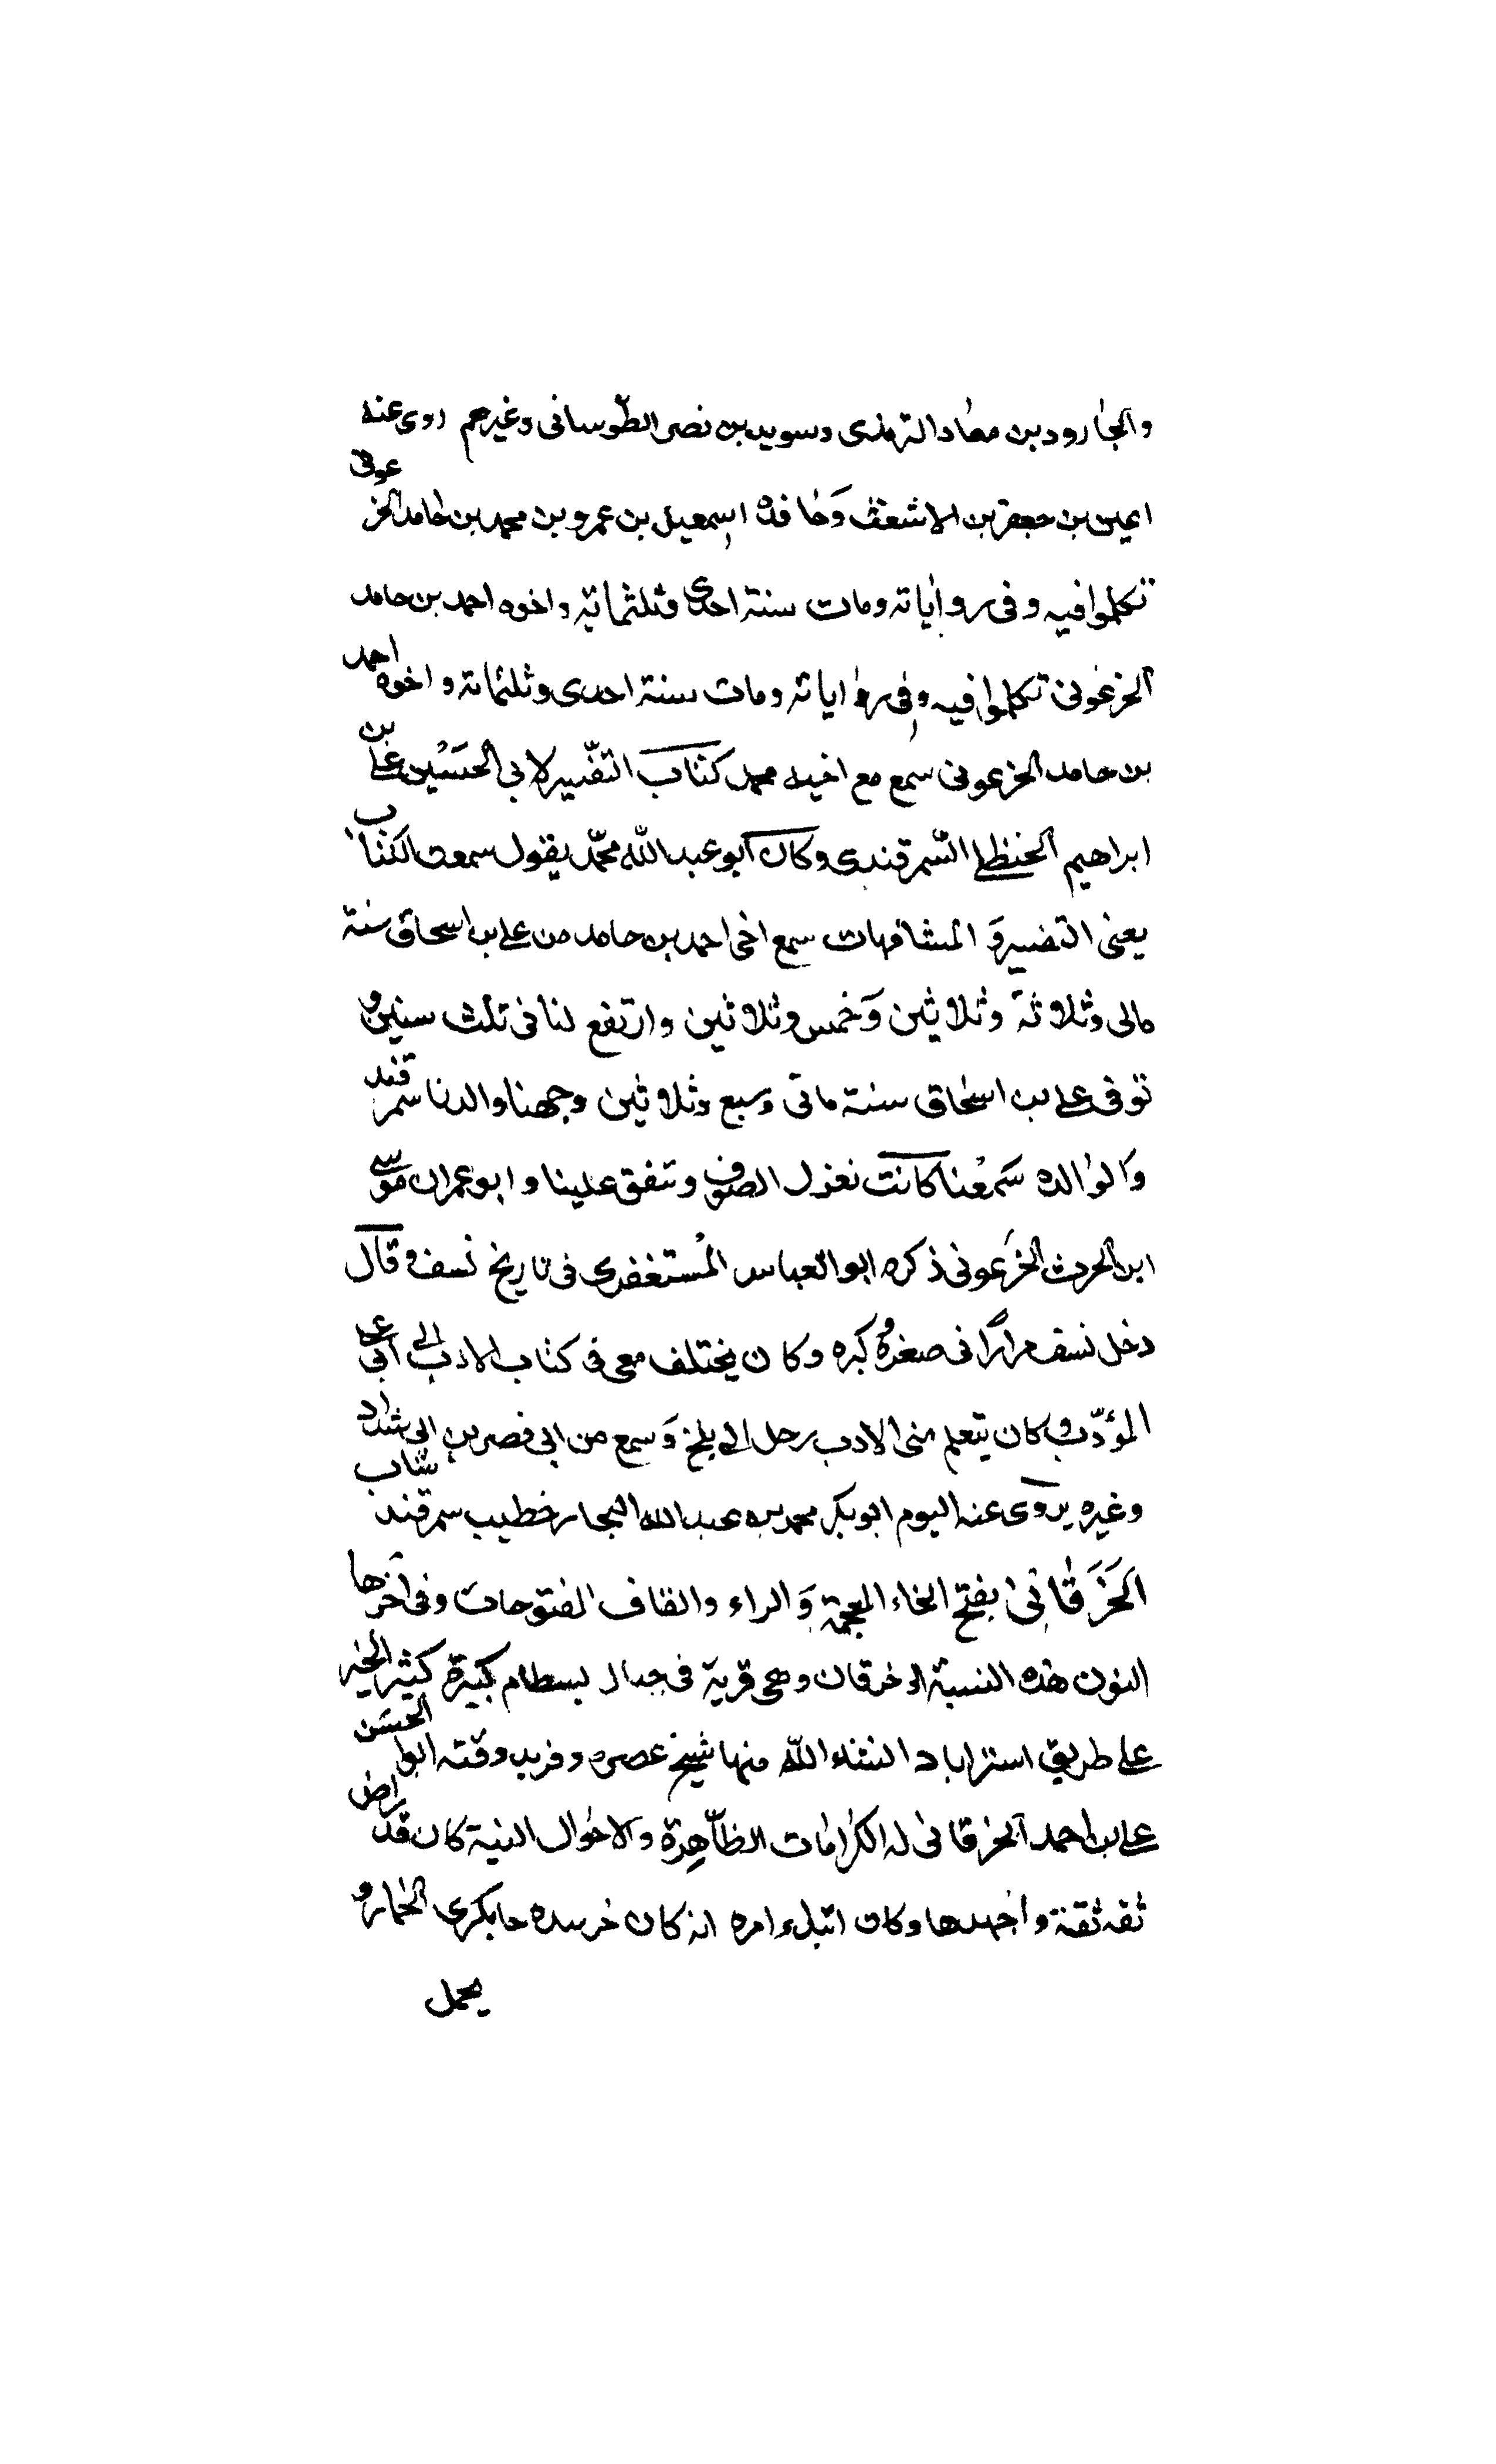 والجارود بن معاد الترمذى وسويد بن نصر الطوسانى وغيرهم روى عنه
ايمين بن جعفر بن الاشعث وَحافده اسمعيل بن عمرو بن محمد بن حامد الخرعونى
تكلموا فيه وفى رواياته ومات سنة احدى وثلثمائة واخوه احمد بن حامد
الخرغونى تكلموا فيه وفى رواياته ومات سنة احدى وثلثمائة واخوه احمد
بن حامد الخرعونى سمع مع اخيه محمد كتاب التفسير لابى الحسين على بن
ابراهيم الحنظلى السمرقندى وكان ابو عبد الله محمّد يقول سمعت الكتاب
يعنى التفسير وَ المشافهات سمع اخى احمد بن حامد من على بن اسحاق سنة
مائى وثلاثة وثلاثين وَخمس وثلاثين وارتفع لنا فى ثلث سنين و
توفى على بن اسحاق سنة مائى وسبع وثلاثين وجهنا والدنا سمرقند
وَالوالده سَمعْنا كانت تغزل الصوف وتنفق علينا وابو عمران موسى
ابن الحرث الخَرعونى ذكره ابو العباس المُستغفرى فى تاريخ نسف وقال
دخل نسف مرارًا فى صغره وكبره وكان يختلف معى فى كتاب الادب الى ابى على
المؤدّب وكان يتعلم منى الادب رحل الى بلخ وَسمع من ابى نصر بن ابى شداد
وغيره يروى عنه اليوم ابو بكر محمد بن عبد الله النجار خطيب سمرقند
الخَرَقانِىّ بفتح الخاء المعجمة وَالراء والقاف المفتوحات وفى اخرها
النون هذه النسبة الى خرقان وهى قرية فى جبال بسطام كبيرة كثير الخير
على طريق استراباد منها شيخ عصره وفريد وقته ابو الحسن
على بن احمد الخرقانى له الكرامات الظاهِرة والاحوال السنية كان قد راض
ثقه ثقة واجهدها وكان ابتداء امره انه كان خربنده جابكرى الحمار و
يحمل